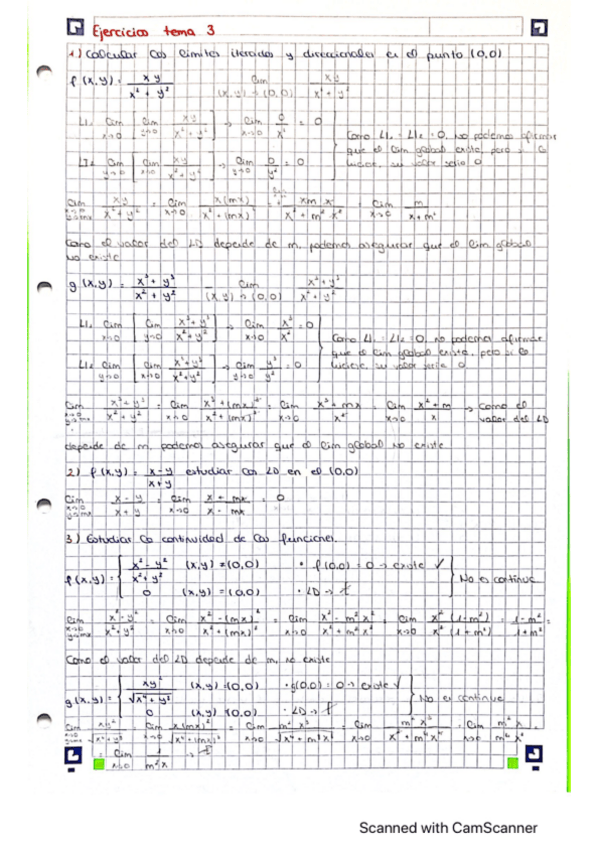 Ejercicios tema 3
1) Calcular los límites iterados y direccionales en el punto (0,0)
f(x,y) = xy / x² + y²    lim (x,y)→(0,0)    xy / x² + y²
LI₁ lim x→0 [ lim y→0 xy / x² + y² ] → lim x→0 0 / x² = 0
LI₂ lim y→0 [ lim x→0 xy / x² + y² ] → lim y→0 0 / y² = 0
Como LI₁ = LI₂ = 0, no podemos afirmar
que el lim global exista, pero si lo
hiciese, su valor sería 0
lim x→0 y=mx xy / x² + y² = lim x→0 x(mx) / x² + (mx)² = xm x / x² + m² x² = lim x→0 m / x + m²
Como el valor del LD depende de m, podemos asegurar que el lim global
no existe
g(x,y) = x³ + y³ / x² + y²    lim (x,y)→(0,0)    x³ + y³ / x² + y²
LI₁ lim x→0 [ lim y→0 x³ + y³ / x² + y² ] → lim x→0 x³ / x² = 0
LI₂ lim y→0 [ lim x→0 x³ + y³ / x² + y² ] → lim y→0 y³ / y² = 0
Como LI₁ = LI₂ = 0, no podemos afirmar
que el lim global exista, pero si lo
hiciese, su valor sería 0
→ Como el
valor del LD
depende de m, podemos asegurar que el lim global no existe
2) f(x,y) = x-y / x+y estudiar los LD en el (0,0)
lim x→0 y=mx x - y / x + y = lim x→0 x + mx / x - mx = 0
3) Estudiar la continuidad de las funciones.
f(x,y) = { x² - y² / x² + y² (x,y) ≠ (0,0) · f(0,0) = 0 → existe ✓
0 (x,y) = (0,0) · LD → ∄
No es continua
lim x→0 y=mx x² - y² / x² + y² = lim x→0 x² - (mx)² / x² + (mx)² = lim x→0 x² - m² x² / x² + m² x² = lim x→0 x² (1 - m²) / x² (1 + m²) = 1 - m² / 1 + m² =
Como el valor del LD depende de m, no existe
g(x,y) = { xy² / √x⁴ + y² (x,y) ≠ (0,0) · g(0,0) = 0 → existe ✓
0 (x,y) = (0,0) · LD → ∄
No es continua
= lim x→0 1 / m² x → ∄
Scanned with CamScanner